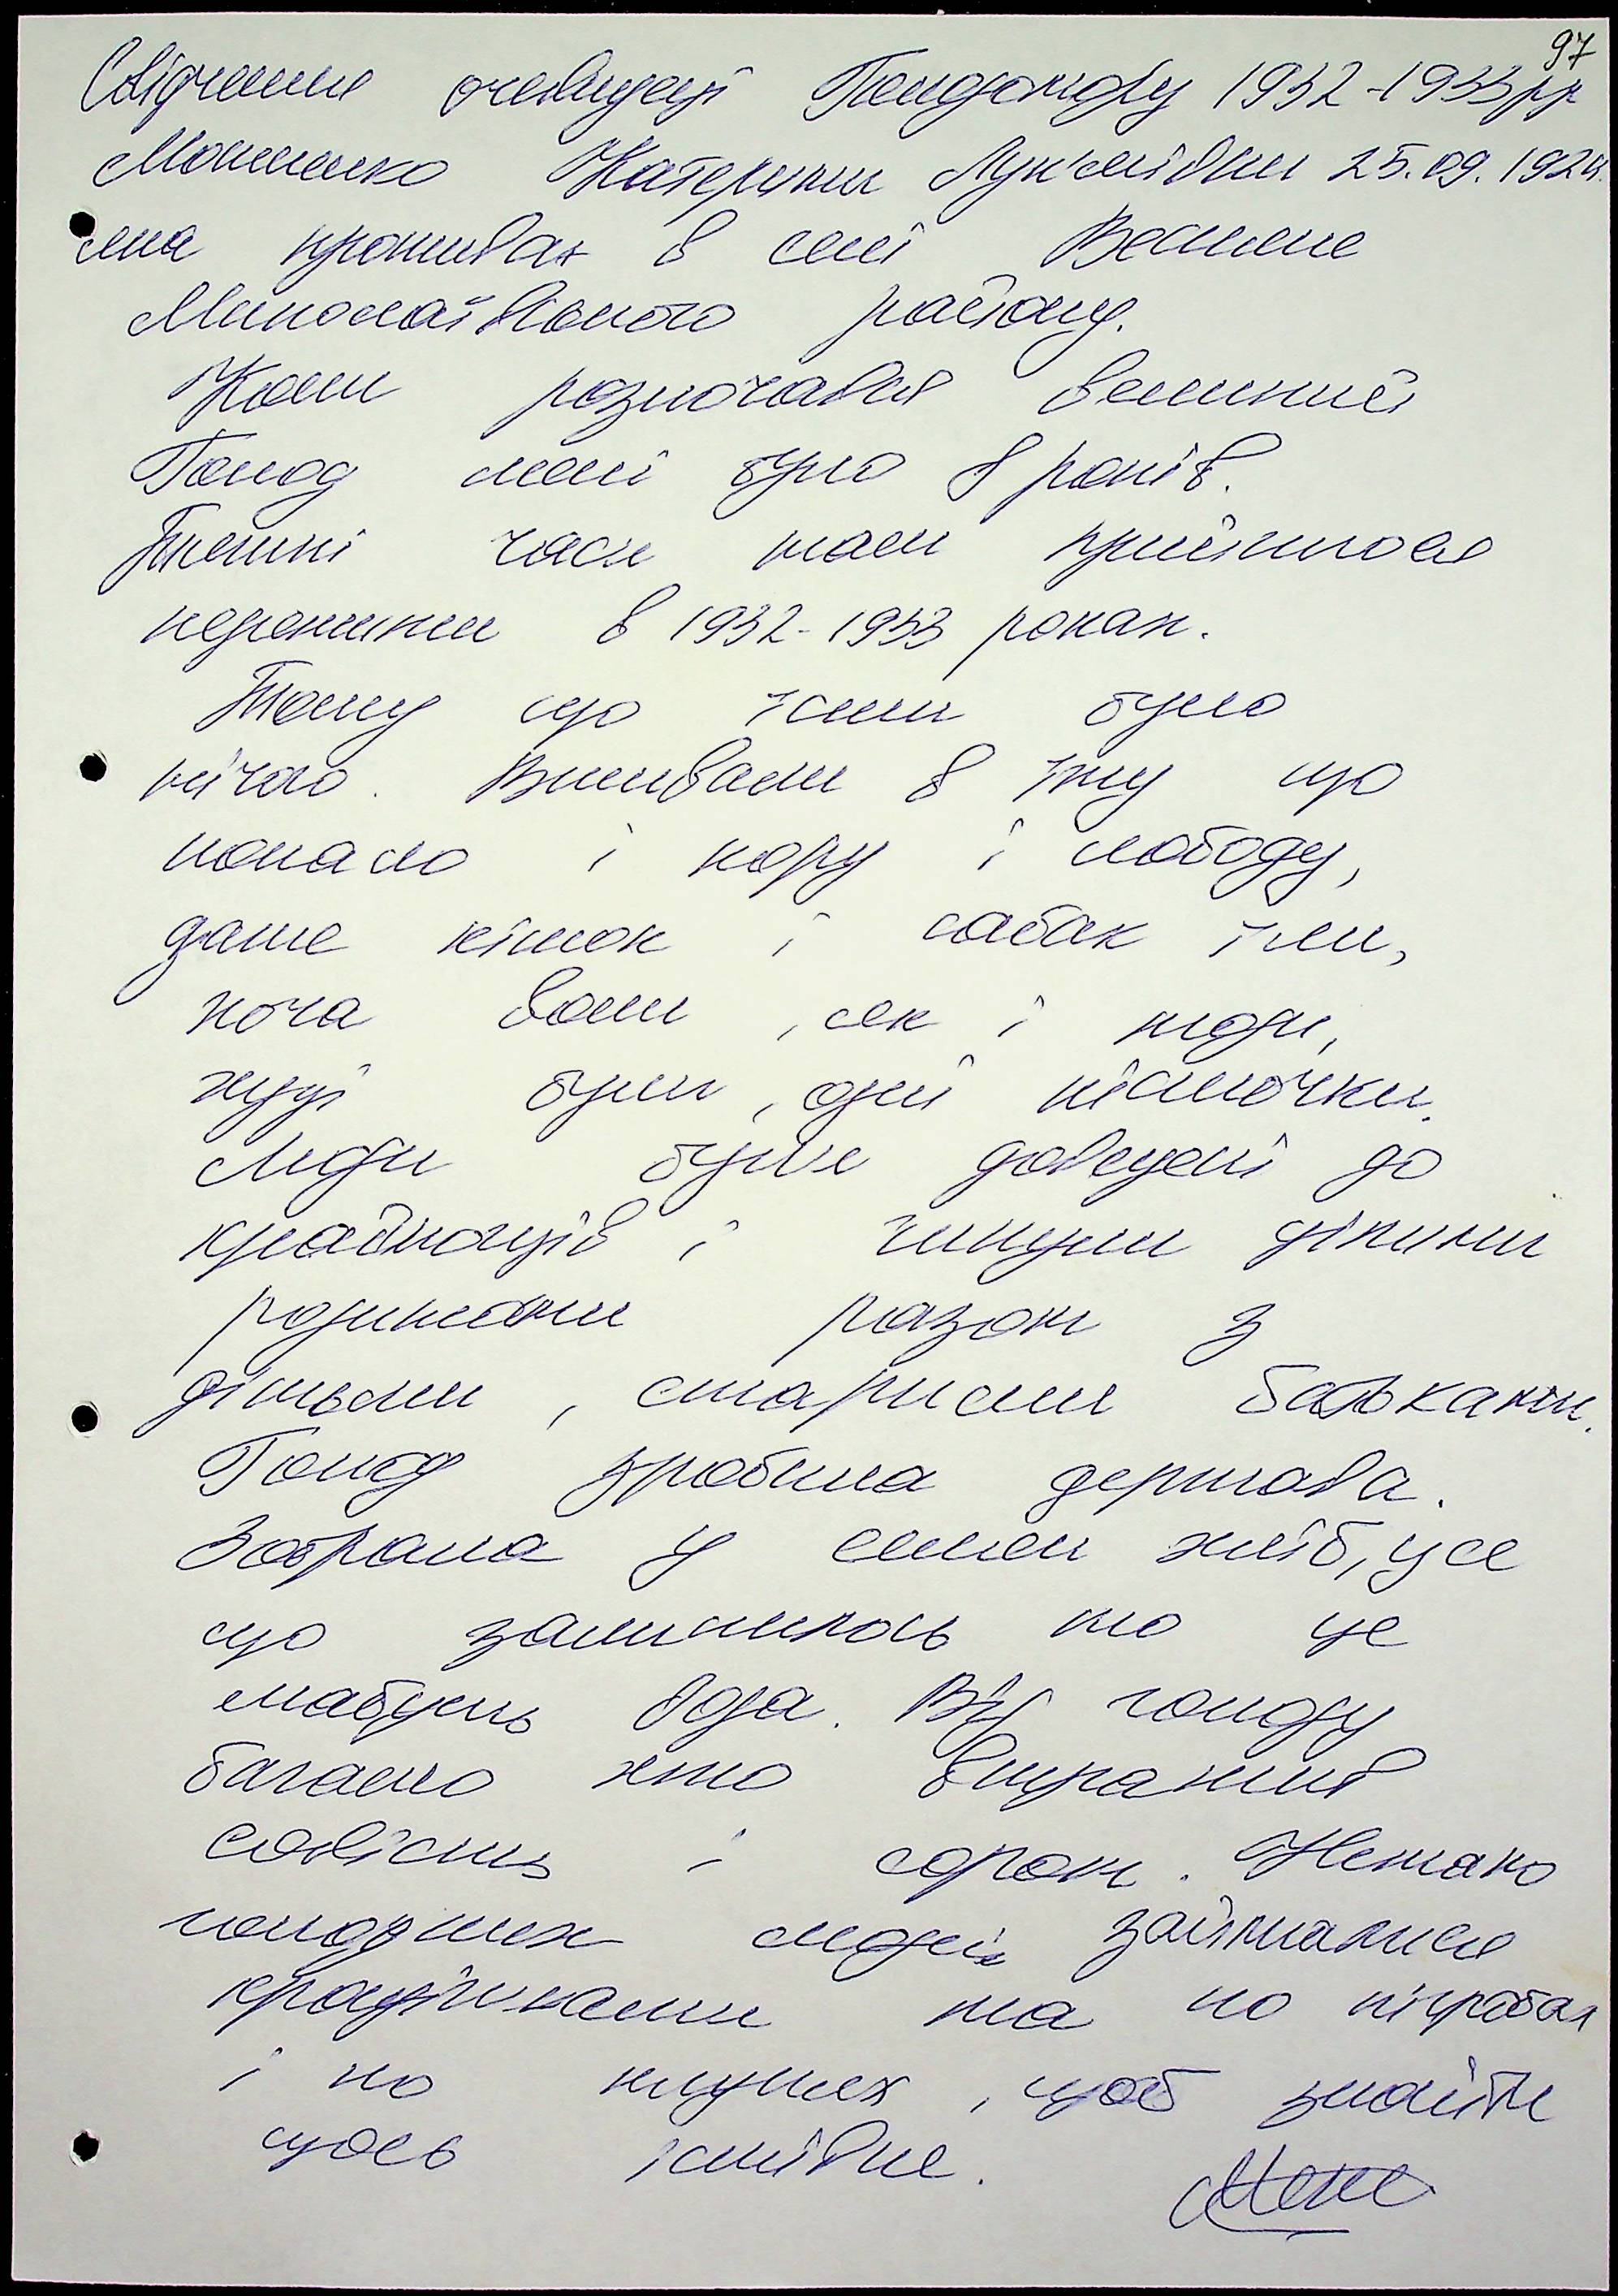 97
Свідчення очевидця Голодомору 1932-1933 рр
Катерини Лук'янівни 25.09.1924.
яка проживає в селі Весняне
Миколаївського району.
Коли розпочався великий
Голод мені було 8 років.
Тяжкі часи нам прийшлося
пережити в 1932-1933 роках.
Тому що їсти було
нічого. Вживали в їжу що
попало і кору і лободу,
даже кішок і сабак їли,
хоча вони, як і люди,
худі були, одні кісточки.
Люди були доведені до
крайнощів і гинули цілими
родинами разом з
дітьми, старими батьками.
Голод зробила держава.
Забрала у селян хліб, усе
що залишилось то це
мабуть вода. Від голоду
багато хто втратив
совість і сором. Чимало
голодних людей займалися
крадіжками та по погрєбах
і по клунях, щоб знайти
щось їстівне.